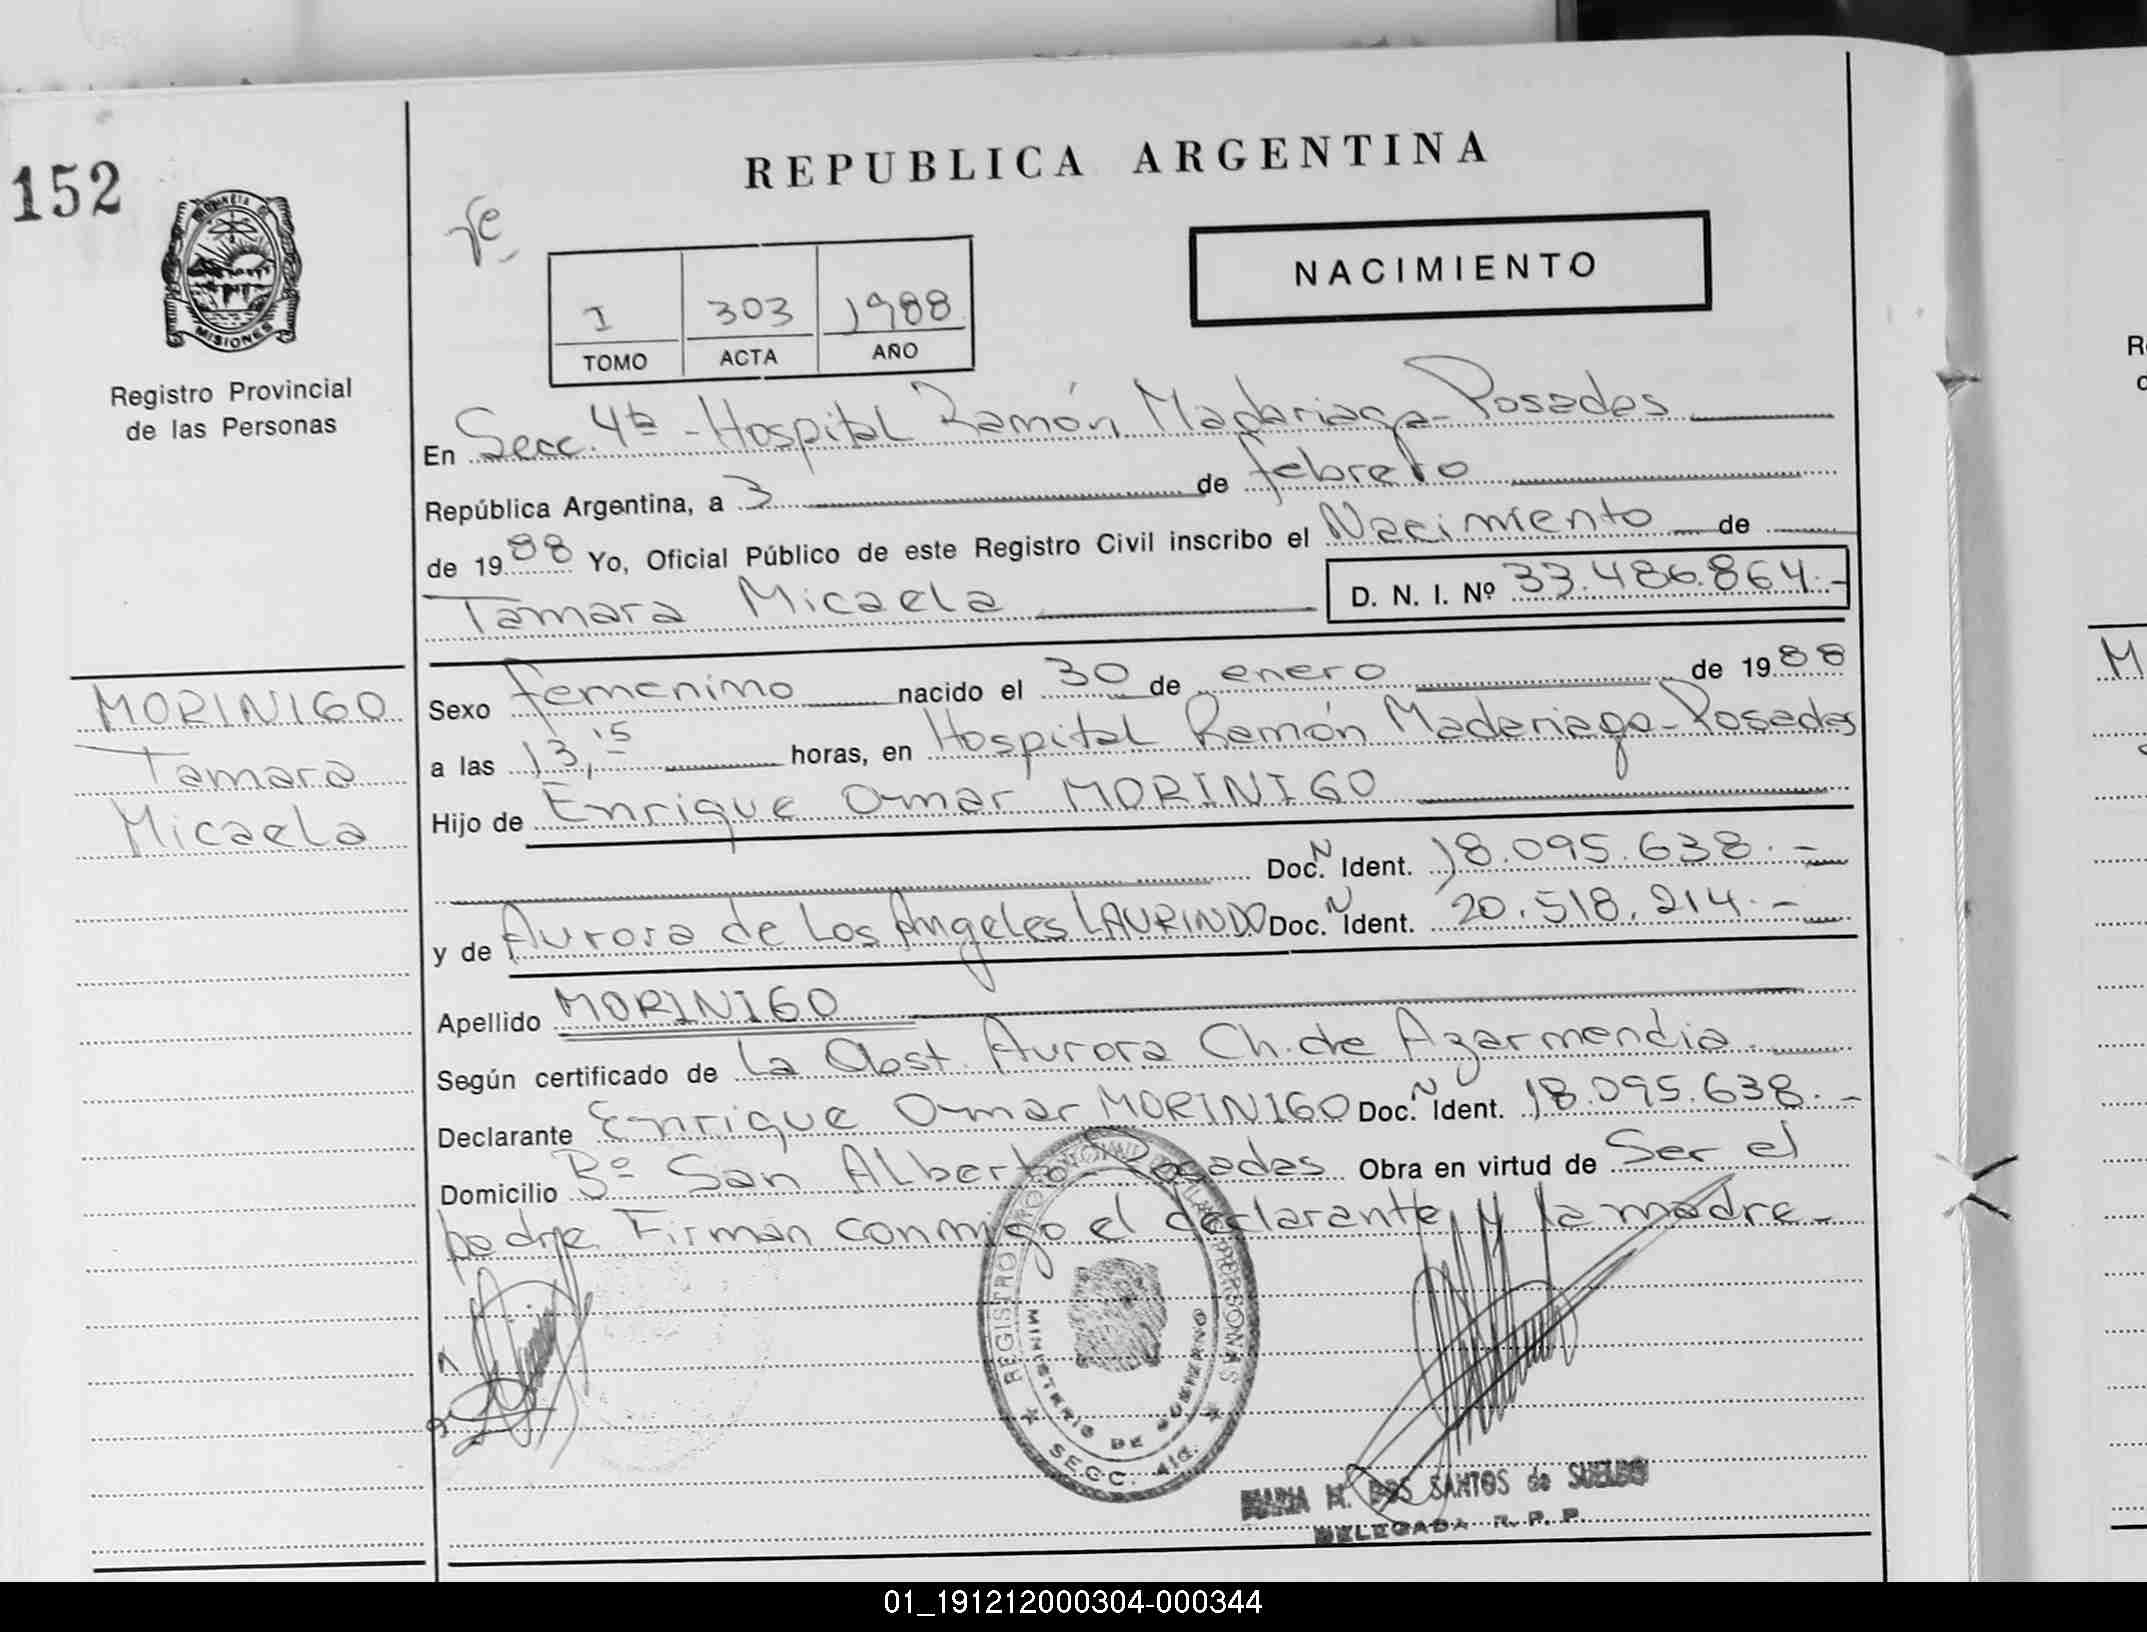 REPUBLICA ARGENTINA
152
PROVINCIA DE
MISIONES
Registro Provincial
de las Personas
I 303 1988
TOMO ACTA AÑO
NACIMIENTO
En Secc. 4ta - Hospital Ramón Madariaga - Posadas
República Argentina, a 3 de febrero
de 1988 Yo, Oficial Público de este Registro Civil inscribo el Nacimiento de
Tamara Micaela D. N. I. Nº 33.486.864.-
MORINIGO
Tamara
Micaela
Sexo femenino nacido el 30 de enero de 1988
a las 13,15 horas, en Hospital Ramón Madariaga - Posadas
Hijo de Enrique Omar MORINIGO
Doc. N Ident. 18.095.638.-
y de Aurora de Los Angeles LAURINDO Doc. N Ident. 20.518.214.-
Apellido MORINIGO
Según certificado de La Obst. Aurora Ch. de Azarmendia
Declarante Enrique Omar MORINIGO Doc. N Ident. 18.095.638.-
Domicilio Bº San Alberto Posadas Obra en virtud de Ser el
padre. Firman conmigo el declarante y la madre.-
REGISTRO PROVINCIAL DE LAS PERSONAS
MINISTERIO DE GOBIERNO
SECC. 4ta.
MARIA M. DOS SANTOS de SUELDO
DELEGADA R. P. P.
01_191212000304-000344